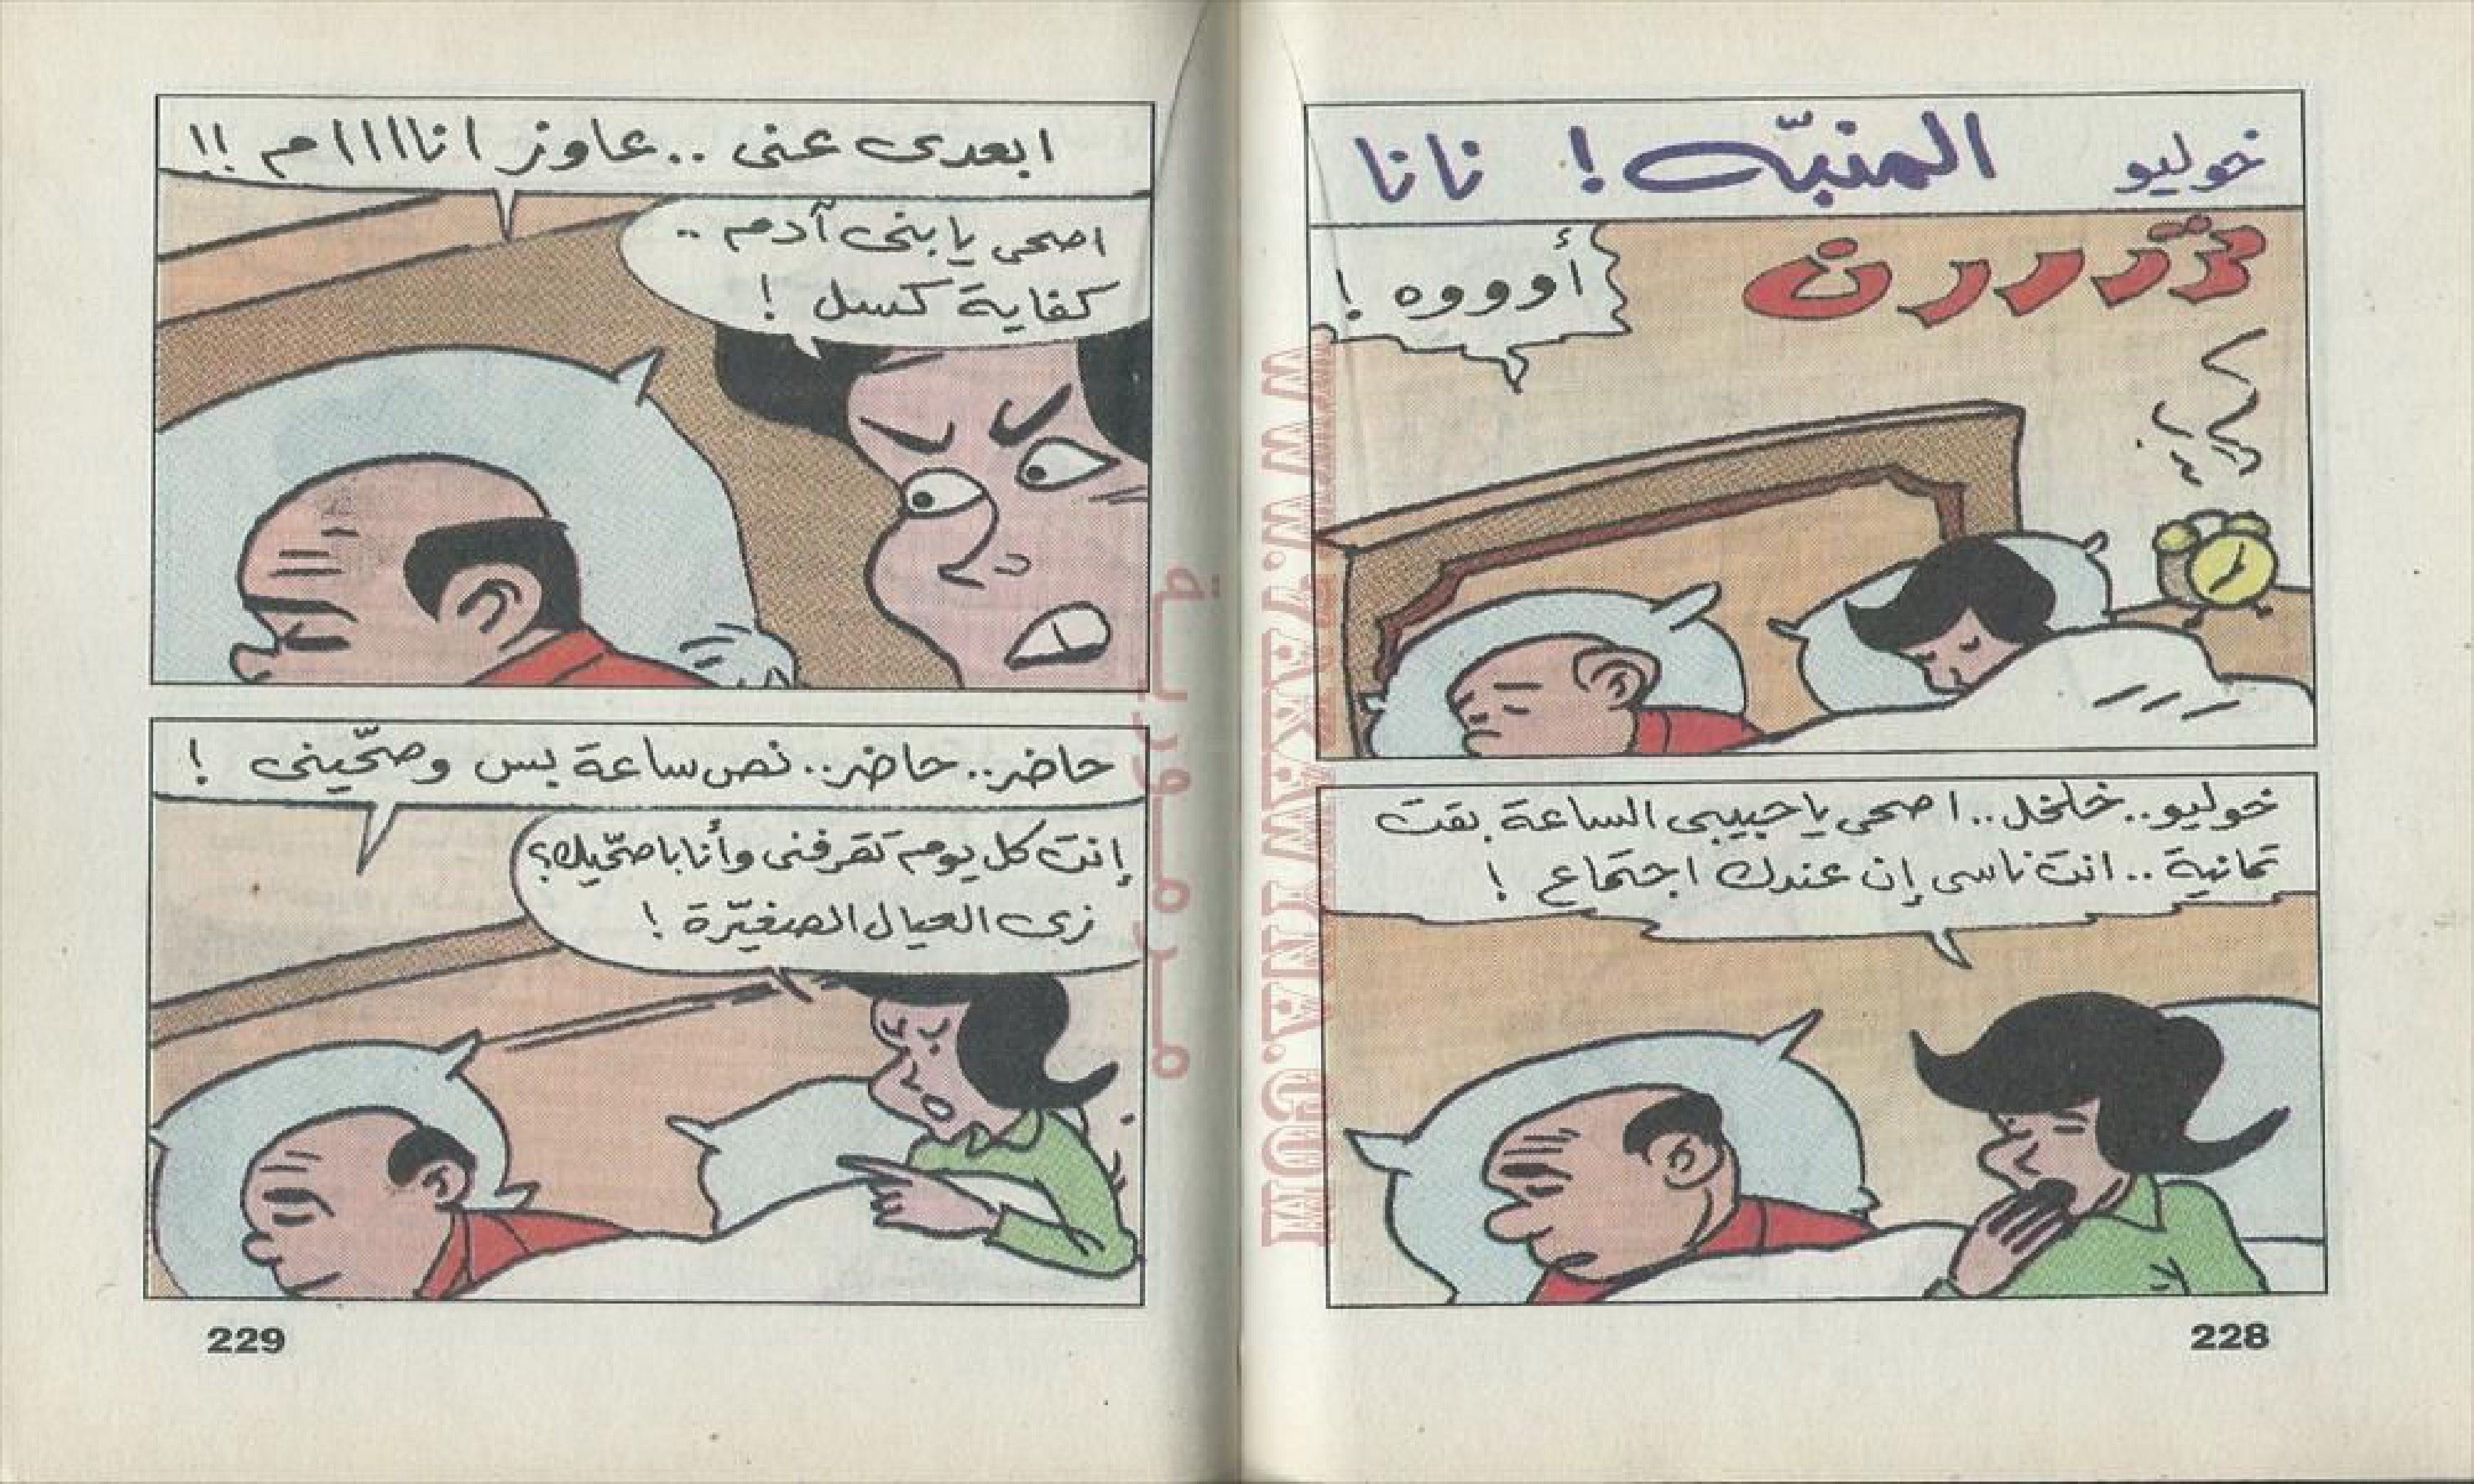 خوليو المنبّه! نانا
تررررن
أوووه!
خوليو.. خلخل.. اصحى يا حبيبى الساعة بقت
تمانية.. انت ناسى إن عندك اجتماع!
228
ابعدى عنى.. عاوز اناااام!!
اصحى يا بنى آدم..
كفاية كسل!
حاضر.. حاضر.. نص ساعة بس وصحّينى!
إنت كل يوم تقرفنى وأنا باصحّيك؟
زى العيال الصغيّرة!
229
WWW.ARABCOMICS.COM